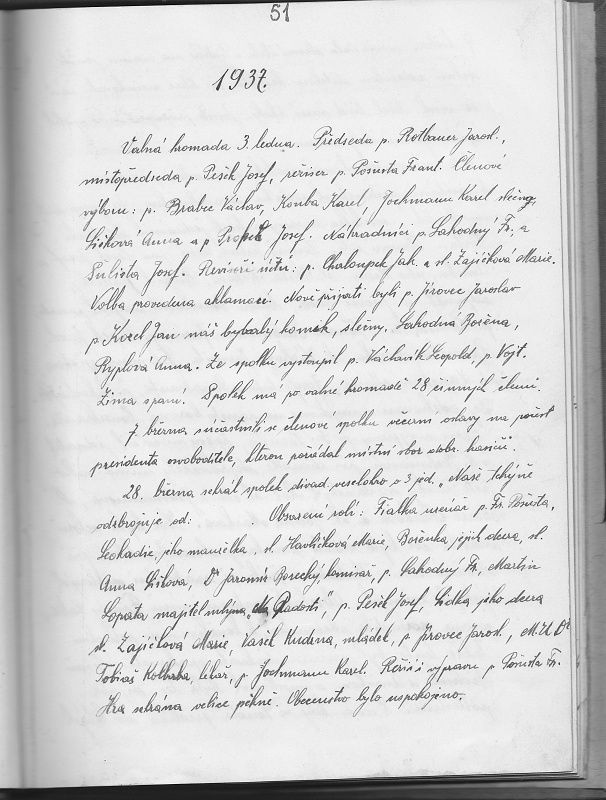 51
1937.
Valná hromada 3. ledna. Předseda p. Rotbauer Jarosl.,
místopředseda p. Pešek Josef, režiser p. Pošusta Frant. Členové
výboru: p. Brabec Václav, Kouba Karel, Jochmann Karel slečna
Lišková Anna a p Josef. Náhradníci p. Lahodný Fr. a
Sulista Josef. Revisoři účtů: p. Chaloupek Jak. a sl. Zajíčková Marie.
Volba provedena aklamací. Nově přijati byli p. Jírovec Jaroslav
p Kozel Jan náš bývalý komik, slečny. Lahodná Božena,
Ryplová Anna. Ze spolku vystoupil p. Václavík Leopold, p. Vojt.
Zima spaní. Spolek má po valné hromadě 28 činných členů.
7 března súčastnili se členové spolku večerní oslavy na počest
presidenta osvoboditele, kterou pořádal místní sbor dobr. hasičů.
28. března sehrál spolek divad. veselohru o 3 jed. „Naše tchýně
odzbrojuje od: Obsazení rolí: Fialka p. Fr. Pošusta,
Leokadie, jeho manželka, sl. Havlíčková Marie, Boženka, jejich dcera, sl.
Anna Lišková, Dr Jaromír Borecký, komisař, p. Lahodný Fr., Martin
Lopata majitel mlýna „Na Radosti", p. Pešek Josef, Lidka jeho dcera
sl. Zajíčková Marie, Vašek Kudrna, mládek, p Jírovec Jarosl., M.U.Dr
Tobiáš Kolbaba, lékař, p Jochmann Karel. Režii i výpravu p Pošusta Fr.
Hra sehrána velice pěkně. Obecenstvo bylo uspokojeno.